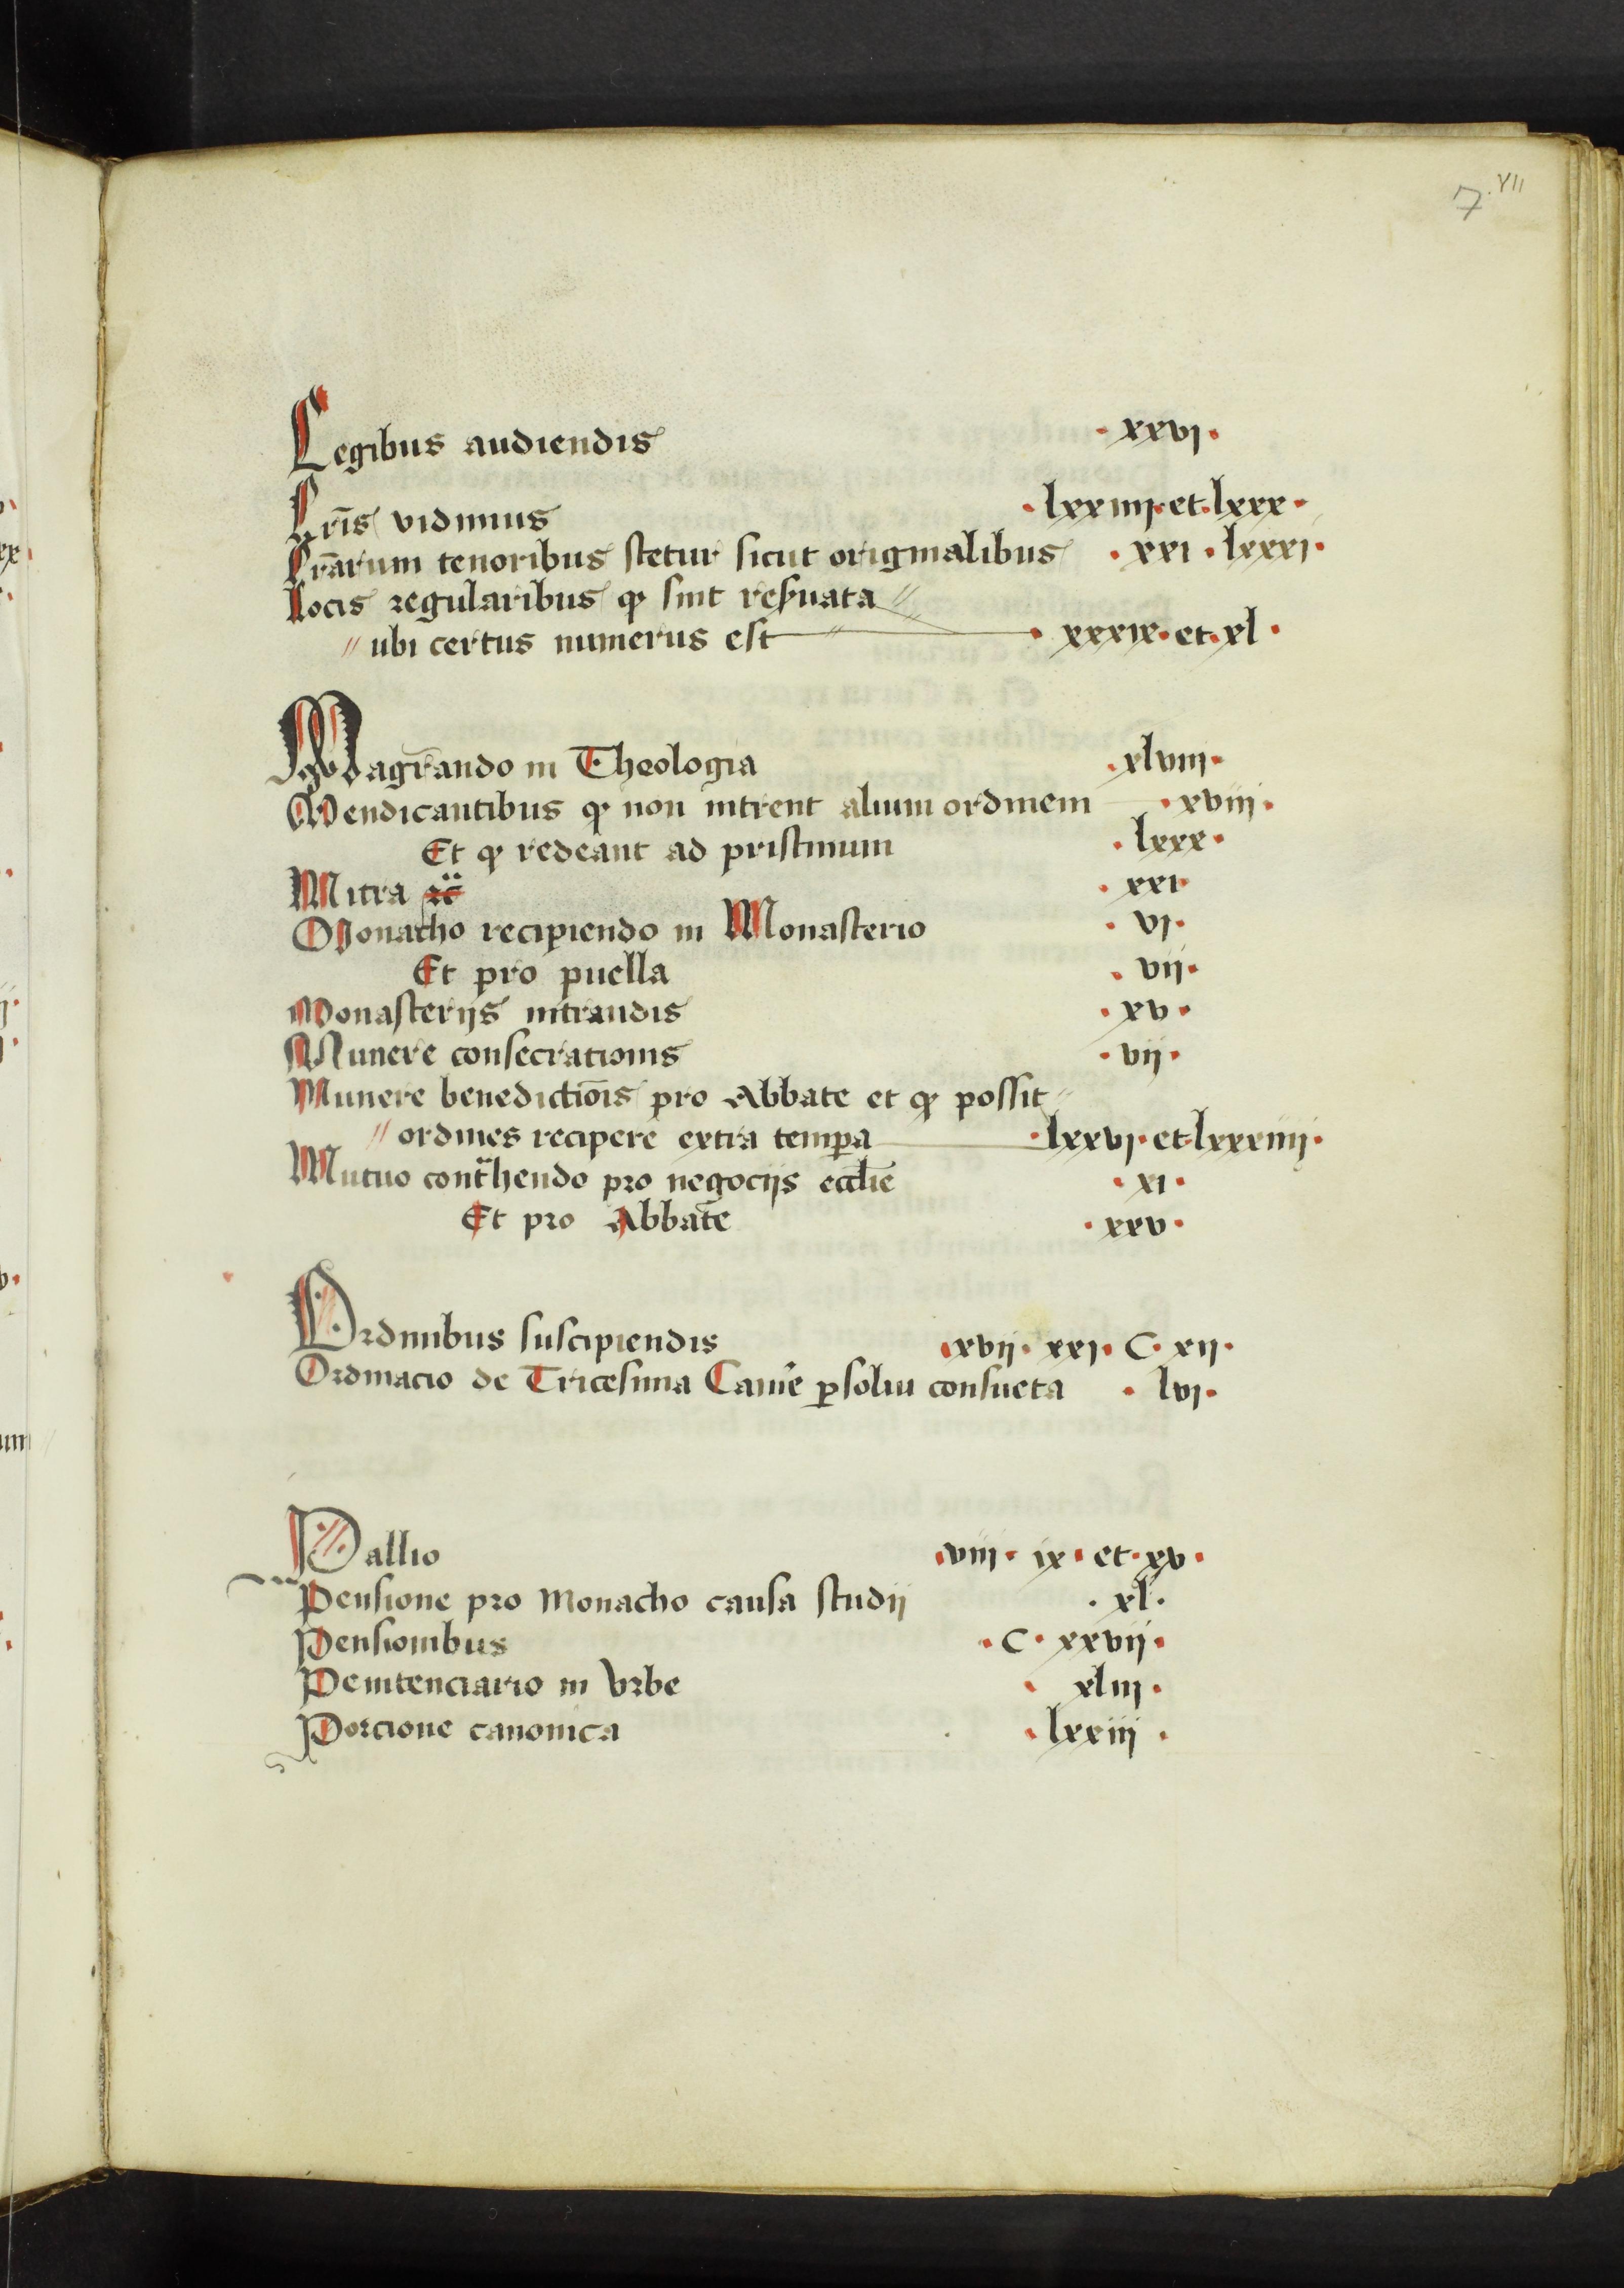 7 .VII
Legibus audiendis · xxvj ·
Lr̄is vidimus · lxxiiij · et · lxxx ·
Lr̄arum tenoribus stetur sicut originalibus · xxi · lxxxj ·
Locis regularibus ꝙ sint reẜuata //
// ubi certus numerus est // · xxxix · et · xl ·
Magr̄ando in Theologia · xlviij ·
Mendicantibus ꝙ non intrent alium ordinem · xviij ·
Et ꝙ redeant ad pristinum · lxxx ·
Mitra · xxi ·
Monacho recipiendo in Monasterio · vj ·
Et pro puella · vij ·
Monasterijs intrandis · xv ·
Munere consecrationis · vij ·
Munere benedictiōis pro Abbate et ꝙ possit //
// ordines recipere extra temꝑa · lxxvj · et · lxxxiiij ·
Mutuo cont̄hendo pro negocijs eccl̄ie · xj ·
Et pro Abbate · xxv ·
Ordinibus suscipiendis · xvij · xxj · C · xij ·
Ordinacio de Tricesima Cam̄e ꝑsolui consueta · lvj ·
Pallio · viij · ix · et · xv ·
Pensione pro Monacho causa studij · xl ·
Pensionibus · C · xxvij ·
Penitenciario in Vrbe · xliij ·
Porcione canonica · lxxiij ·